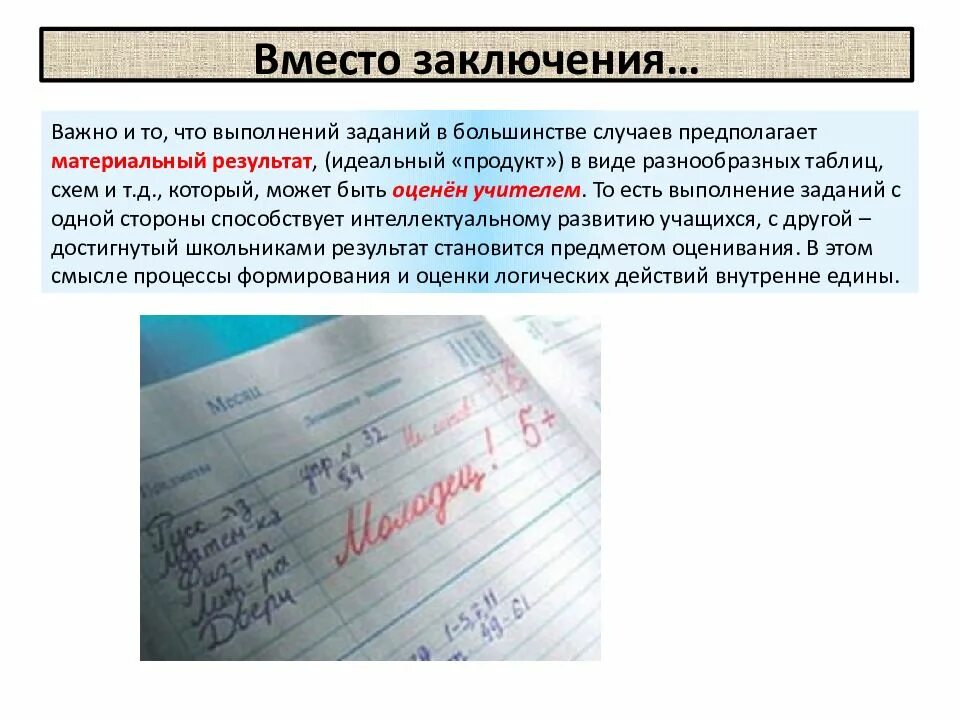 Вместо заключения...
Важно и то, что выполнений заданий в большинстве случаев предполагает
материальный результат, (идеальный «продукт») в виде разнообразных таблиц,
схем и т.д., который, может быть оценён учителем. То есть выполнение заданий с
одной стороны способствует интеллектуальному развитию учащихся, с другой –
достигнутый школьниками результат становится предметом оценивания. В этом
смысле процессы формирования и оценки логических действий внутренне едины.
Месяц
Домашнее задание
Предметы
упр. N 32
54
Не готов!
Молодец! 5+
Русс яз
Матем-ка
Физ-ра
Лит-ра
1-5,7,11
49-61